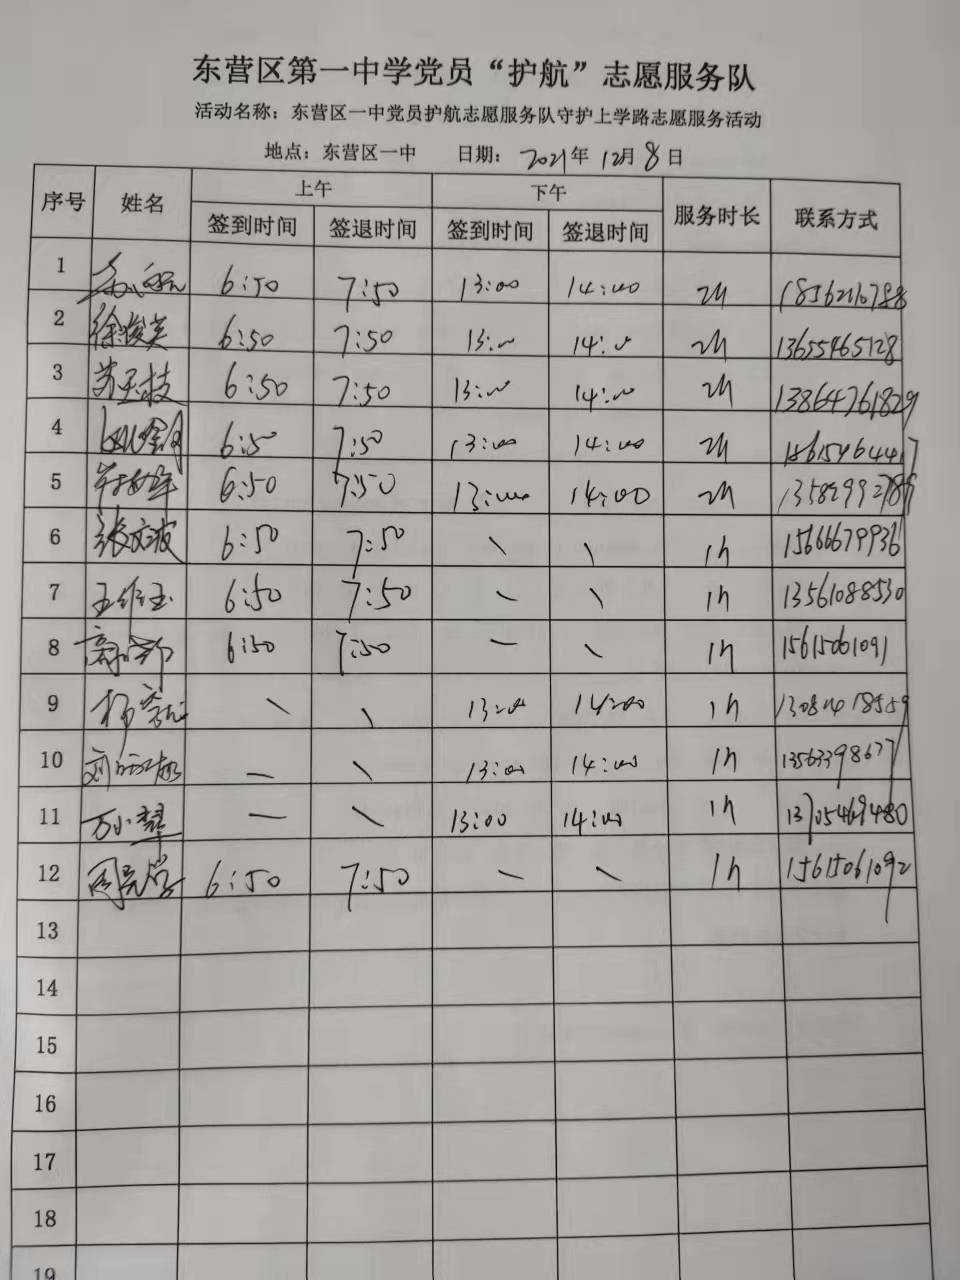 东营区第一中学党员“护航”志愿服务队
活动名称：东营区一中党员护航志愿服务队守护上学路志愿服务活动
地点：东营区一中 日期：2021年12月8日
序号 姓名 上午 下午 服务时长 联系方式
签到时间 签退时间 签到时间 签退时间
1 6:50 7:50 13:00 14:00 2h
2 徐俊英 6:50 7:50 13:00 14:00 2h 13655465128
3 6:50 7:50 13:00 14:00 2h 13864761829
4 6:50 7:50 13:00 14:00 2h
5 6:50 7:50 13:00 14:00 2h
6 张文波 6:50 7:50 \ \ 1h 15666679936
7 王维玉 6:50 7:50 \ \ 1h 13561088530
8 6:50 7:50 — \ 1h 15615061091
9 \ \ 13:00 14:00 1h
10 — \ 13:00 14:00 1h 13563398677
11 万小翠 — \ 13:00 14:00 1h 13705469480
12 6:50 7:50 \ \ 1h 15615061092
13
14
15
16
17
18
19